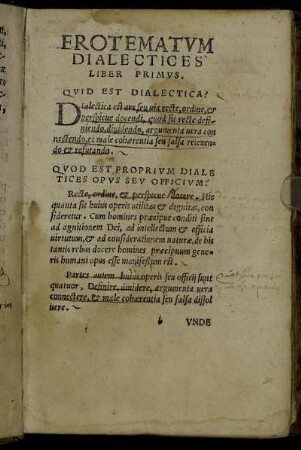 EROTEMATVM
DIALECTICES
LIBER PRIMVS.
QVID EST DIALECTICA?
Dialectica est ars seu uia recte, ordine, &
perspicue docendi, quod fit recte defi-
niendo, diuidendo, argumenta uera con
nectendo, et male cohærentia seu falsa retexen
do & refutando.
QVOD EST PROPRIVM DIALE
CTICES OPVS SEV OFFICIVM?
Recte, ordine, & perspicue docere. Hic
quanta sit huius operis utilitas et dignitas, con
sideretur. Cum homines præcipue conditi sint
ad agnitionem Dei, ad intellectum & officia
uirtutum, & ad considerationem naturæ, de his
tantis rebus docere homines præcipuum gene-
ris humani opus esse manifestum est.
Partes autem huius operis seu officij sunt
quatuor, Definire, diuidere, argumenta uera
connectere, & male cohærentia seu falsa dissol
uere.
b VNDE